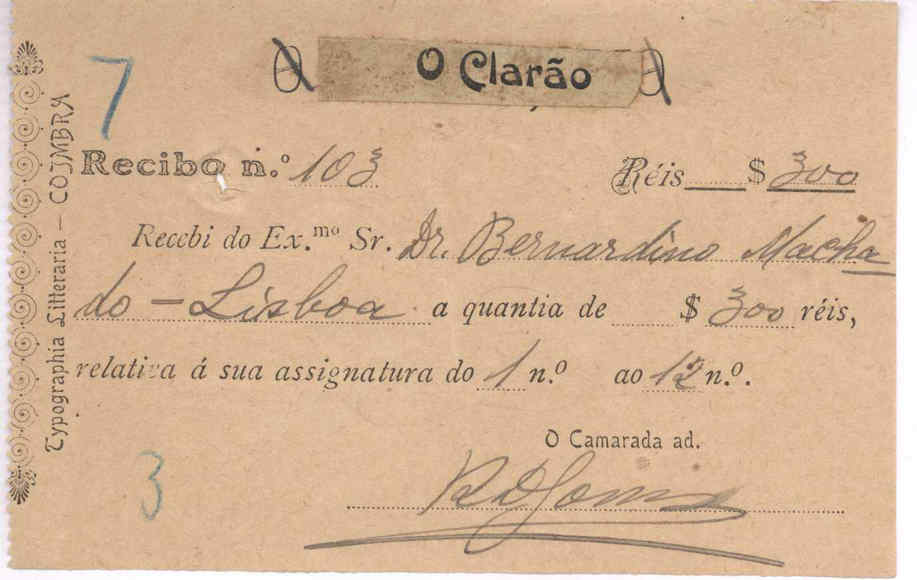 7
O Clarão
Recibo n.º 103 Réis $ 300
Recebi do Ex.mo Sr. Dr. Bernardino Macha
do - Lisboa a quantia de $ 300 réis,
relativa á sua assignatura do 1 n.º ao 12 n.º.
O Camarada ad.
3
Typographia Litteraria — COIMBRA